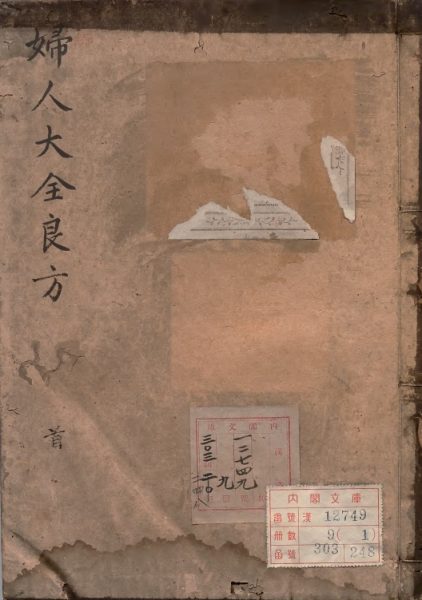 婦人大全良方
首
内閣文庫
一二七四九
九
三〇三
内閣文庫
番號 漢 12749
冊數 9( 1)
函號 303 248